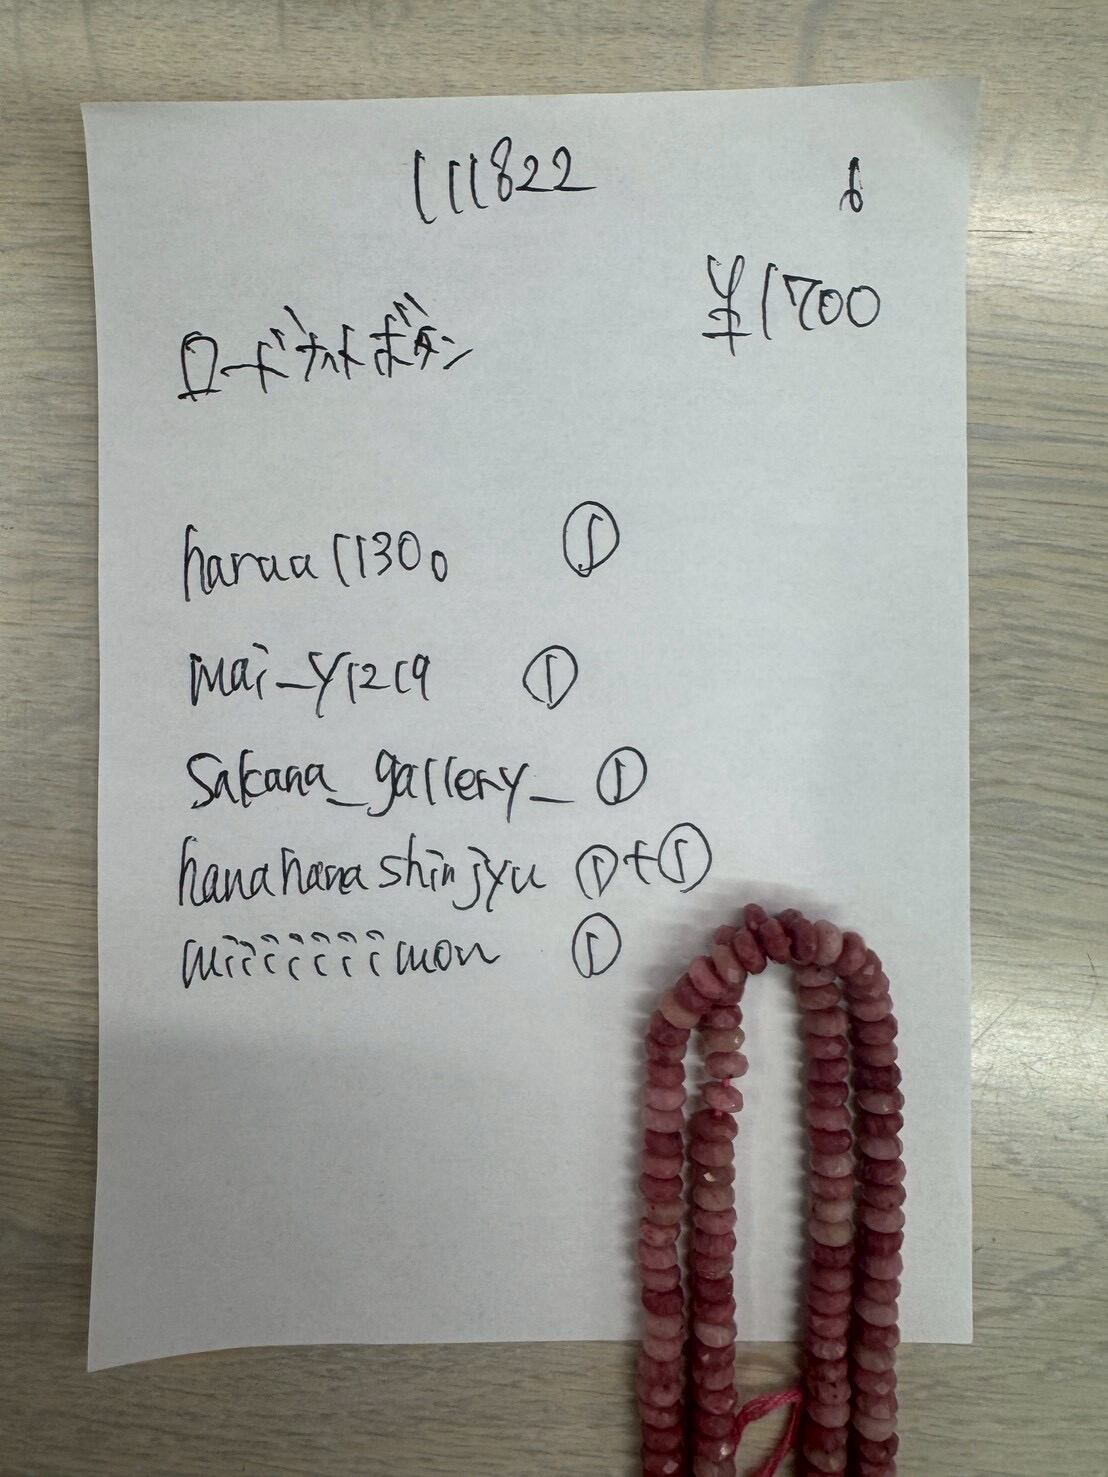 111822 6
¥1700
ロードナイトボタン
haraa11300 ①
mai_y1219 ①
sakana_gallery_ ①
hanahanashinjyu ①+①
miiiiiiimon ①